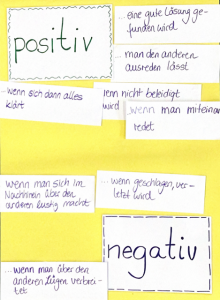 positiv
... eine gute Lösung ge-
funden wird
... man den anderen
ausreden lässt
... wenn sich dann alles
klärt
wenn nicht beleidigt
wird
wenn man miteinan
redet
wenn man sich im
Nachhinein über den
anderen lustig macht
... wenn geschlagen, ver-
letzt wird
negativ
... wenn man über den
anderen Lügen verbrei-
tet